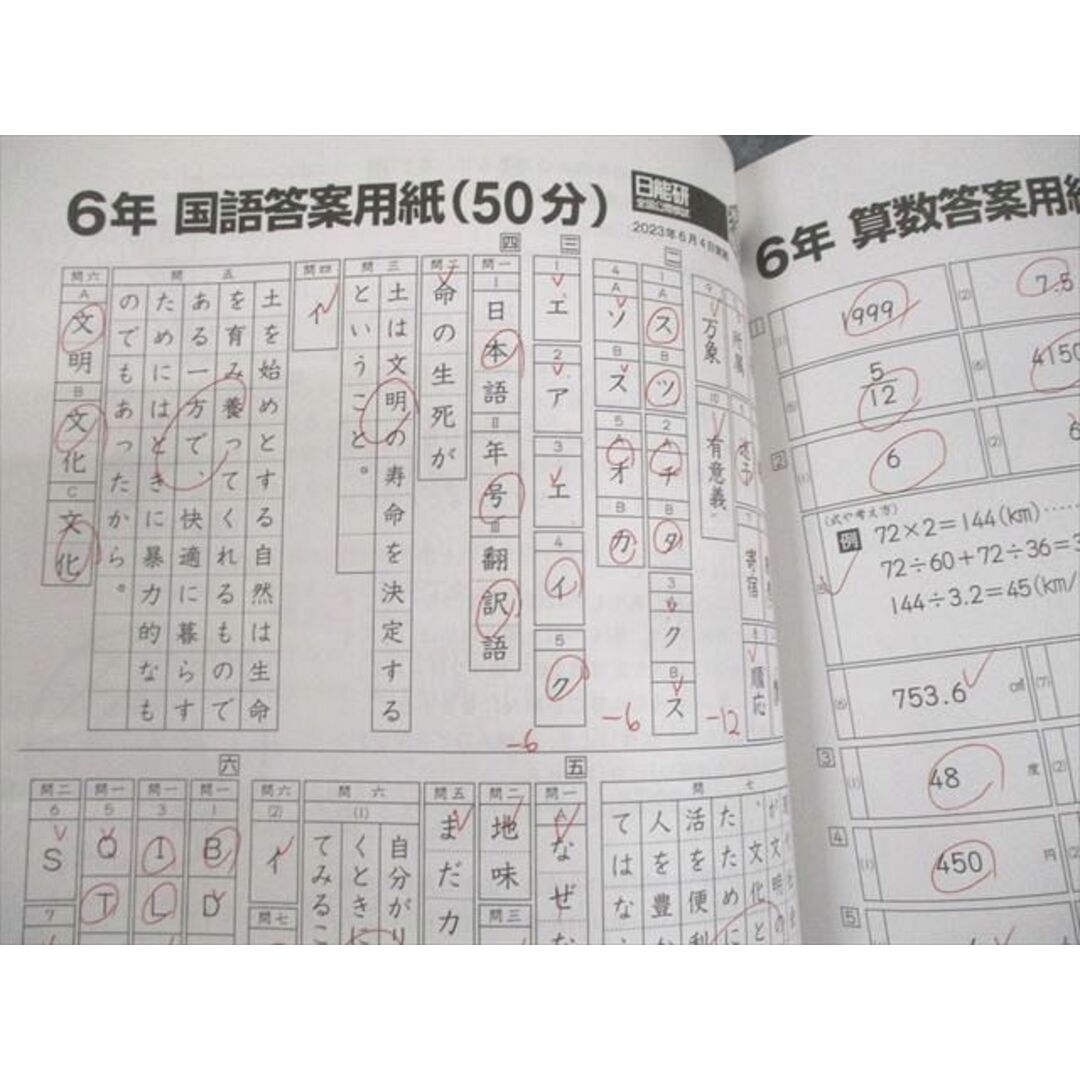 6年 国語答案用紙(50分)
日能研
2023年6月4日実施
二
1
A
ス
B
ツ
2
A
チ
B
タ
3
A
ク
B
ス
4
A
ソ
B
ス
5
A
オ
B
カ
万象
10
有意義
寄宿
順応
-12
-6
三
1
エ
2
ア
3
エ
4
イ
5
ク
-6
四
問一
I
日本語
II
年号
III
翻訳語
問二
命の生死が
問三
土は文明の寿命を決定する
ということ。
問四
イ
問五
土を始めとする自然は生命
を育み養ってくれるもので
ある一方で、快適に暮らす
ためにはときに暴力的なも
のでもあったから。
問六
A
文明
B
文化
C
文化
五
問一
A
なぜ
問二
地味
問三
問五
まだカ
問六
(1)
自分が
くとき
てみるこ
(2)
イ
問七
問七
ため
活を便利
人を豊か
てはな
六
問一
1
B
D
問一
3
I
L
問一
5
Q
T
問二
6
S
7
6年 算数答案用紙
1
999
(2)
7.5
5/12
(6)
4150
2
(1)
6
(2)
(式や考え方)
例 72×2=144(km)……
72÷60+72÷36=3
144÷3.2=45(km/
(6)
753.6
cm²
(7)
3
(1)
48
度
(2)
4
(1)
450
円
(2)
5